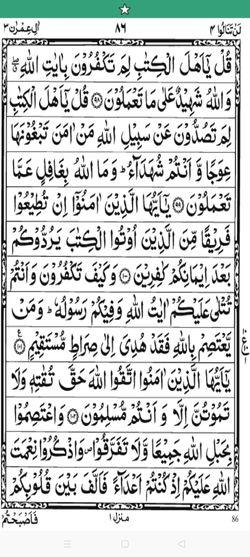 لن تنالوا ٤ ٨٦ اٰل عمرٰن ٣
قُلْ يٰۤاَهْلَ الْكِتٰبِ لِمَ تَكْفُرُوْنَ بِاٰيٰتِ اللّٰهِ ۖ
وَ اللّٰهُ شَهِيْدٌ عَلٰى مَا تَعْمَلُوْنَ ﴿۹۸﴾ قُلْ يٰۤاَهْلَ الْكِتٰبِ
لِمَ تَصُدُّوْنَ عَنْ سَبِيْلِ اللّٰهِ مَنْ اٰمَنَ تَبْغُوْنَهَا
عِوَجًا وَّ اَنْتُمْ شُهَدَآءُ ؕ وَ مَا اللّٰهُ بِغَافِلٍ عَمَّا
تَعْمَلُوْنَ ﴿۹۹﴾ يٰۤاَيُّهَا الَّذِيْنَ اٰمَنُوْۤا اِنْ تُطِيْعُوْا
فَرِيْقًا مِّنَ الَّذِيْنَ اُوْتُوا الْكِتٰبَ يَرُدُّوْكُمْ
بَعْدَ اِيْمَانِكُمْ كٰفِرِيْنَ ﴿۱۰۰﴾ وَ كَيْفَ تَكْفُرُوْنَ وَ اَنْتُمْ
تُتْلٰى عَلَيْكُمْ اٰيٰتُ اللّٰهِ وَ فِيْكُمْ رَسُوْلُهٗ ؕ وَ مَنْ
يَّعْتَصِمْ بِاللّٰهِ فَقَدْ هُدِيَ اِلٰى صِرَاطٍ مُّسْتَقِيْمٍ ﴿۱۰۱﴾
يٰۤاَيُّهَا الَّذِيْنَ اٰمَنُوا اتَّقُوا اللّٰهَ حَقَّ تُقٰتِهٖ وَ لَا
تَمُوْتُنَّ اِلَّا وَ اَنْتُمْ مُّسْلِمُوْنَ ﴿۱۰۲﴾ وَ اعْتَصِمُوْا
بِحَبْلِ اللّٰهِ جَمِيْعًا وَّ لَا تَفَرَّقُوْا ۪ وَ اذْكُرُوْا نِعْمَتَ
اللّٰهِ عَلَيْكُمْ اِذْ كُنْتُمْ اَعْدَآءً فَاَلَّفَ بَيْنَ قُلُوْبِكُمْ
86 منزل ١ فَاَصْبَحْتُمْ